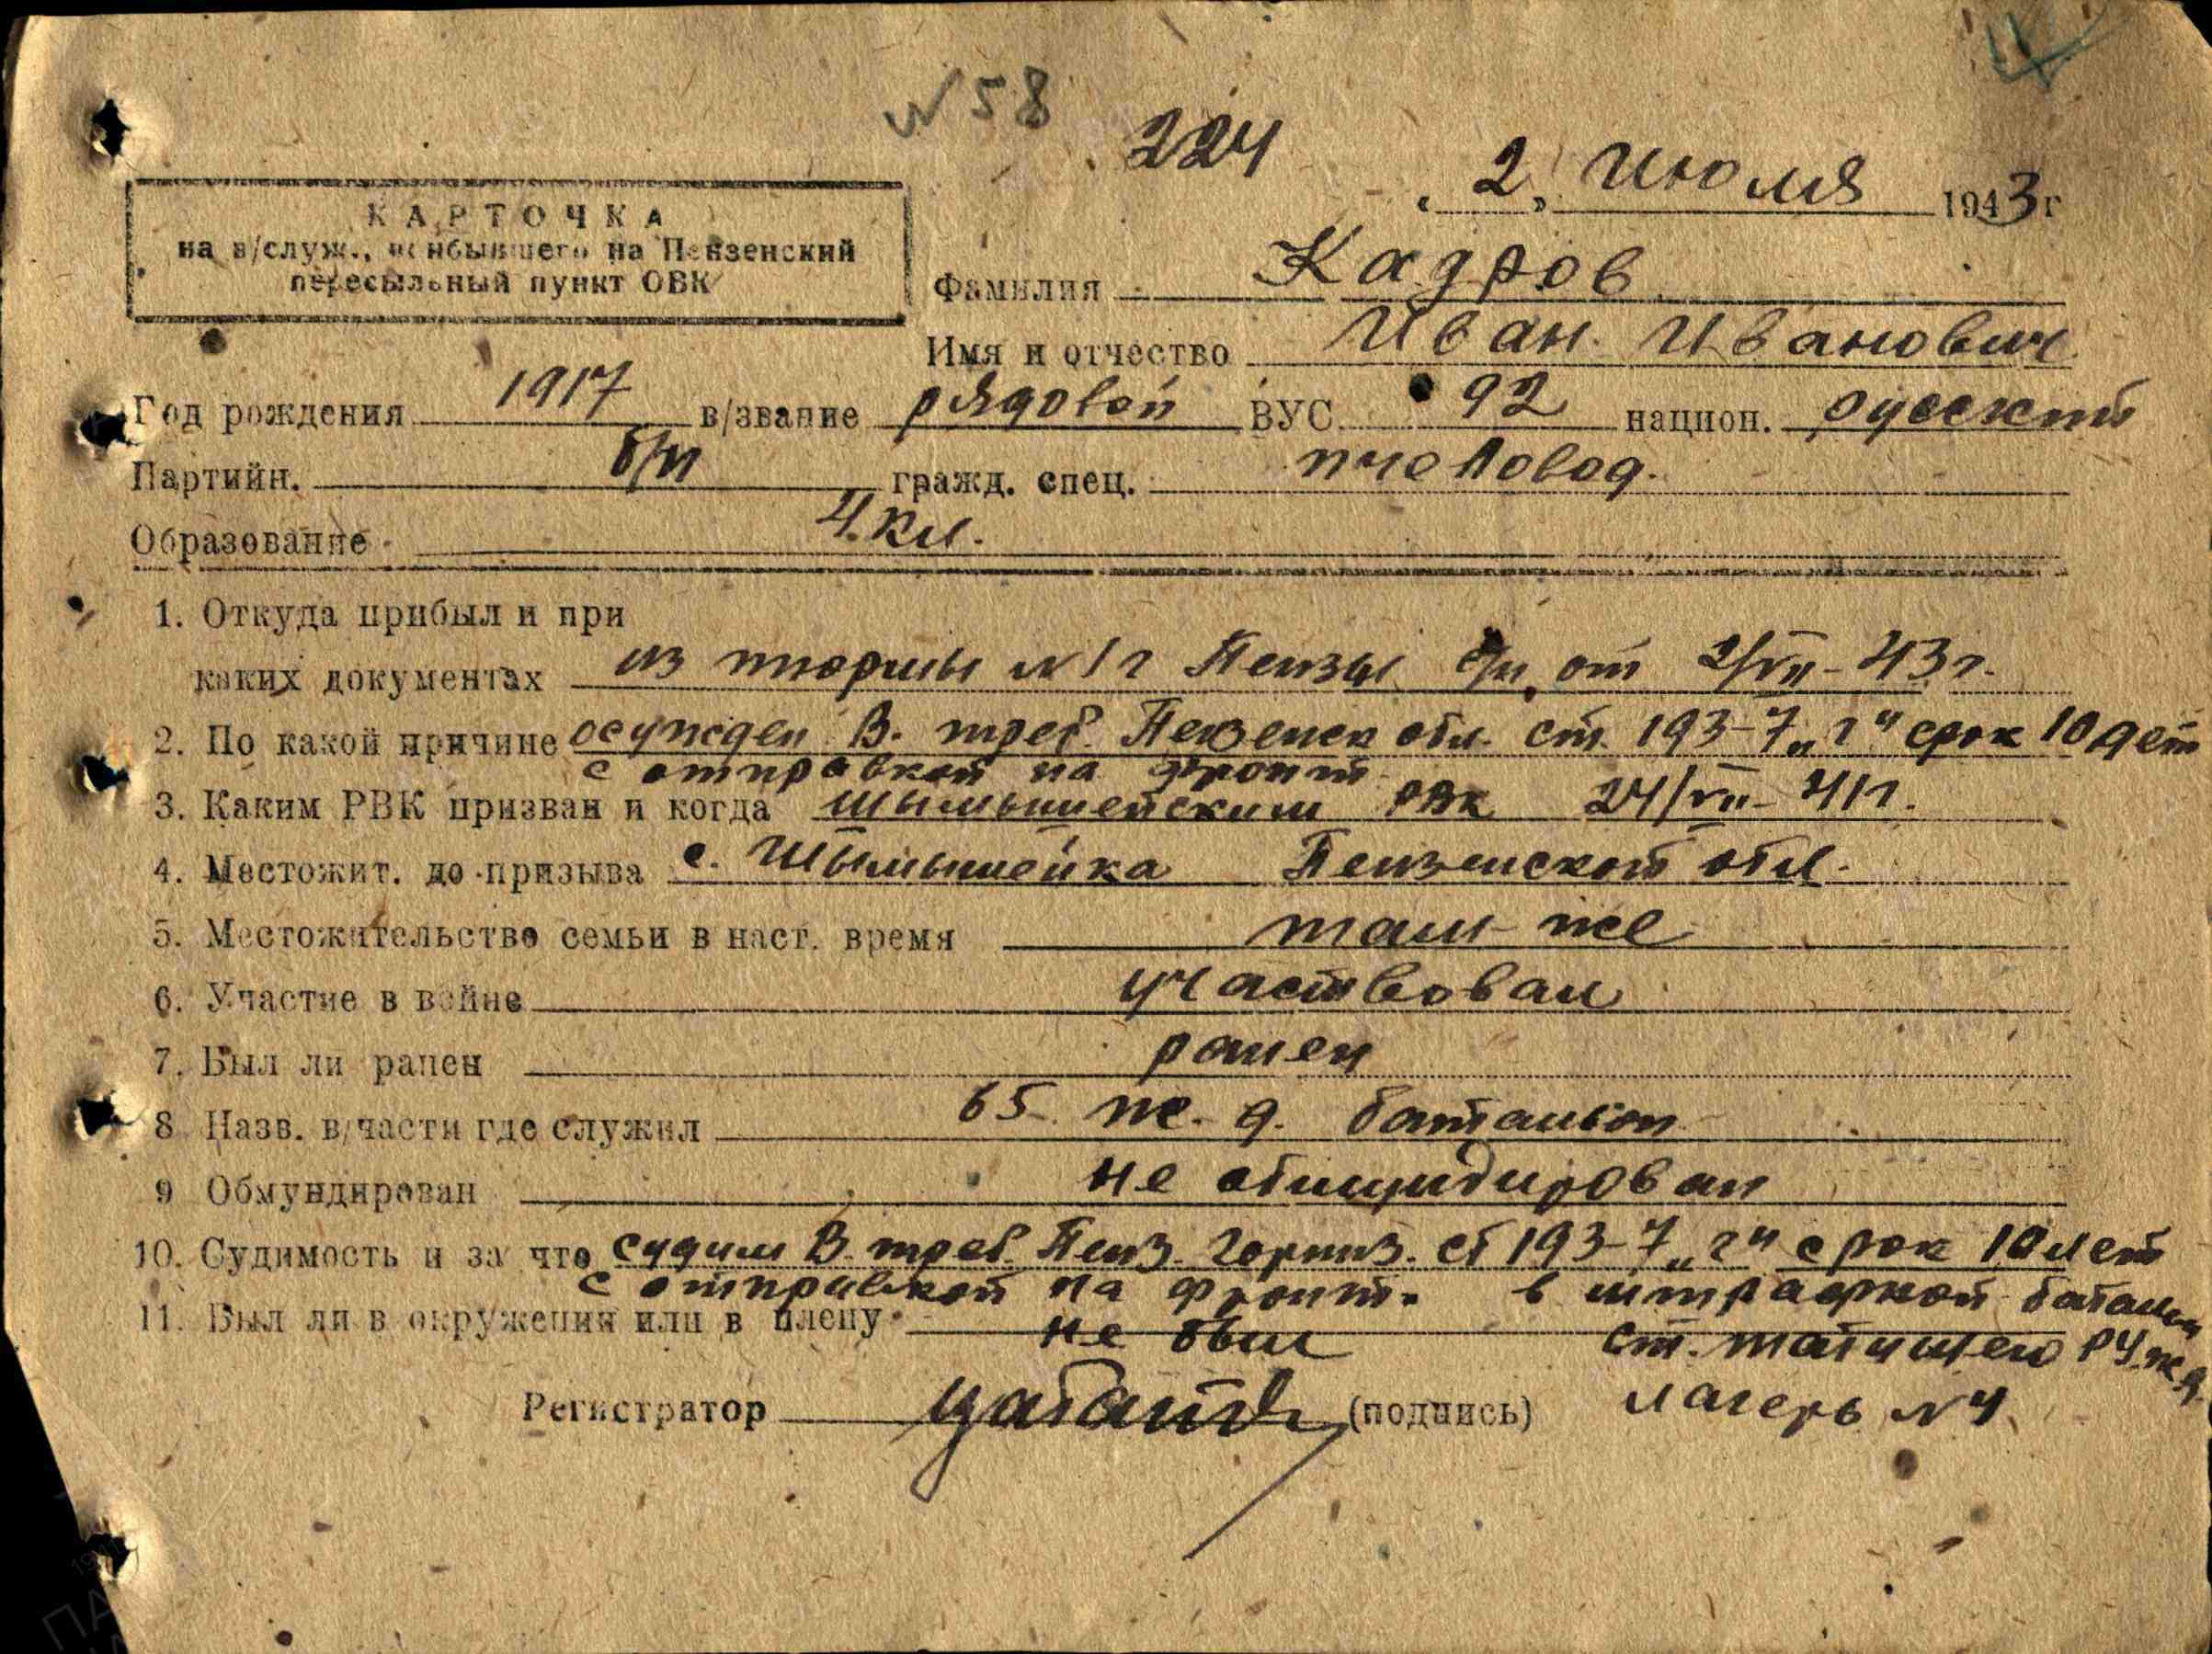 № 58
224
„ 2 „ Июля 1943 г
КАРТОЧКА
на в/служ., прибывшего на Пензенский
пересыльный пункт ОВК
Фамилия Кадров
Имя и отчество Иван Иванович
Год рождения 1917 в/звание рядовой ВУС 92 национ. русский
Партийн. б/п гражд. спец. пчеловод.
Образование 4 кл.
1. Откуда прибыл и при
каких документах из тюрмы №1 г Пензы от 2/VII-43г.
2. По какой причине осужден В. треб. Пензенск обл. ст. 193-7 „г" срок 10 лет
с отправкой на фронт
3. Каким РВК призван и когда Шымышейским РВК 24/VII-41г.
4. Местожит. до призыва с. Шымышейка Пензенской обл.
5. Местожительство семьи в наст. время там-же
6. Участие в войне участвовал
7. Был ли ранен ранен
8 Назв. в/части где служил 65 ж. д. батальон
9 Обмундирован не обмундирован
10. Судимость и за что судим В. треб. Пенз. Горниз. ст 193-7 „г" срок 10 лет
с отправкой на фронт. в штрафной батальон
11. Был ли в окружении или в плену не был ст. Татищево РУ ж д.
Регистратор (подпись) лагерь №4